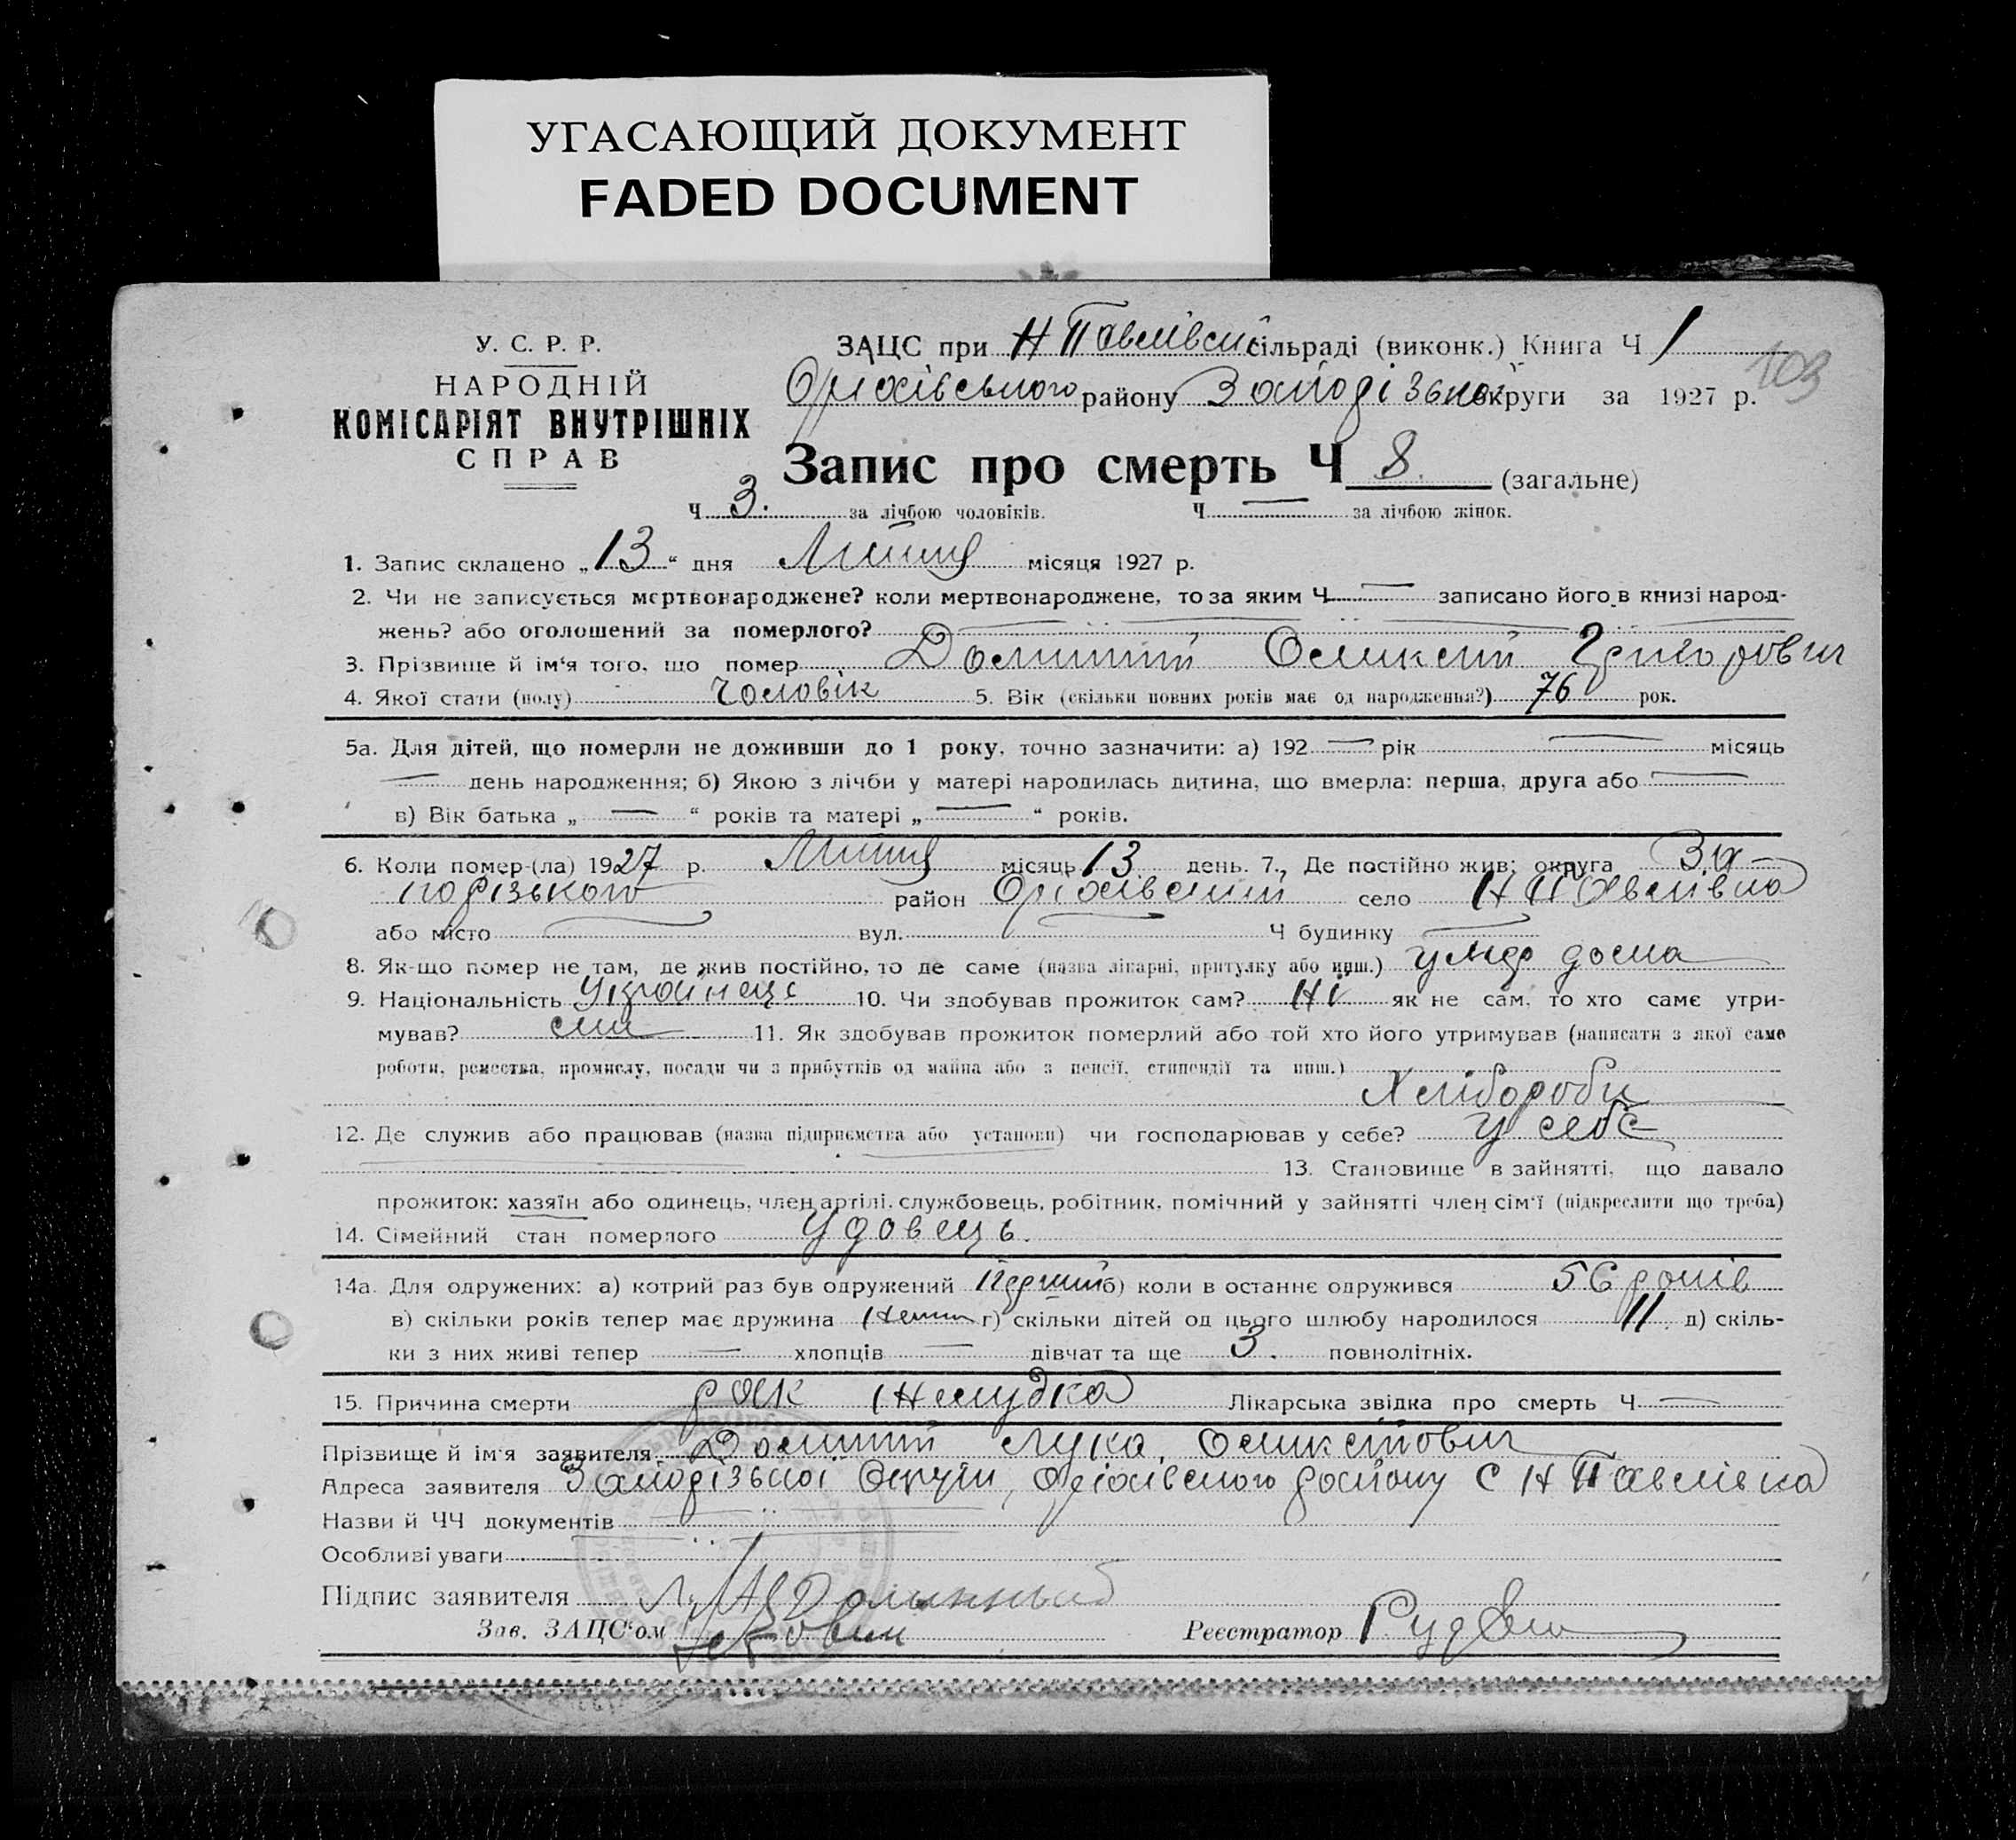 УГАСАЮЩИЙ ДОКУМЕНТ
FADED DOCUMENT
У. С. Р. Р.
НАРОДНІЙ
КОМІСАРІЯТ ВНУТРІШНІХ
СПРАВ
ЗАЦС при Н Павлівській сільраді (виконк.) Книга Ч 1
103
Оріхівського району Запорізької округи за 1927 р.
Запис про смерть Ч 8. (загальне)
Ч 3. за лічбою чоловіків. Ч — за лічбою жінок.
1. Запис складено „13“ дня Липня місяця 1927 р.
2. Чи не записується мертвонароджене? коли мертвонароджене, то за яким Ч — записано його в книзі народ-
жень? або оголошений за померлого?
3. Прізвище й ім‘я того, що помер Долинний Оликсій Григорович
4. Якої стати (полу) Чоловік 5. Вік (скільки повних років має од народження?) 76 рок.
5а. Для дітей, що померли не доживши до 1 року, точно зазначити: а) 192 — рік — місяць
— день народження; б) Якою з лічби у матері народилась дитина, що вмерла: перша, друга або —
в) Вік батька „ — “ років та матері „ — “ років.
6. Коли помер-(ла) 1927 р. Липня місяць 13 день. 7. Де постійно жив: округа За-
порізького район Оріхівський село Н Павлівка
або місто — вул. — Ч будинку —
8. Як-що помер не там, де жив постійно, то де саме (назва лікарні, притулку або инш.) дома
9. Національність Українець 10. Чи здобував прожиток сам? Ні як не сам, то хто саме утри-
мував? син 11. Як здобував прожиток померлий або той хто його утримував (написати з якої саме
роботи, ремества, промислу, посади чи з прибутків од майна або з пенсії, стипендії та инш.)
Хлібороби
12. Де служив або працював (назва підприємства або установи) чи господарював у себе? У себе
13. Становище в зайнятті, що давало
прожиток: хазяїн або одинець, член артілі, службовець, робітник, помічний у зайнятті член сім‘ї (підкреслити що треба)
14. Сімейний стан померлого Удовець.
14а. Для одружених: а) котрий раз був одружений Первий б) коли в останнє одружився 56 років
в) скільки років тепер має дружина Нема г) скільки дітей од цього шлюбу народилося 11 д) скіль-
ки з них живі тепер — хлопців — дівчат та ще 3. повнолітніх.
15. Причина смерти рак Желудка Лікарська звідка про смерть Ч —
Прізвище й ім‘я заявителя Долинний Лука Оликсійович
Адреса заявителя Запорізької Округи, Оріхівського району С Н Павлівка
Назви й ЧЧ документів
Особливі уваги
Підпис заявителя Л. А Долинный
Зав. ЗАЦС‘ом Реєстратор